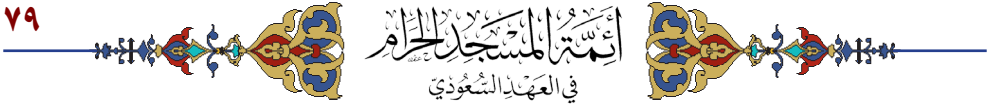 ٧٩
أَئِمَّةُ المَسْجِدِ الحَرَامِ
فِي العَهْدِ السُّعُودِيّ